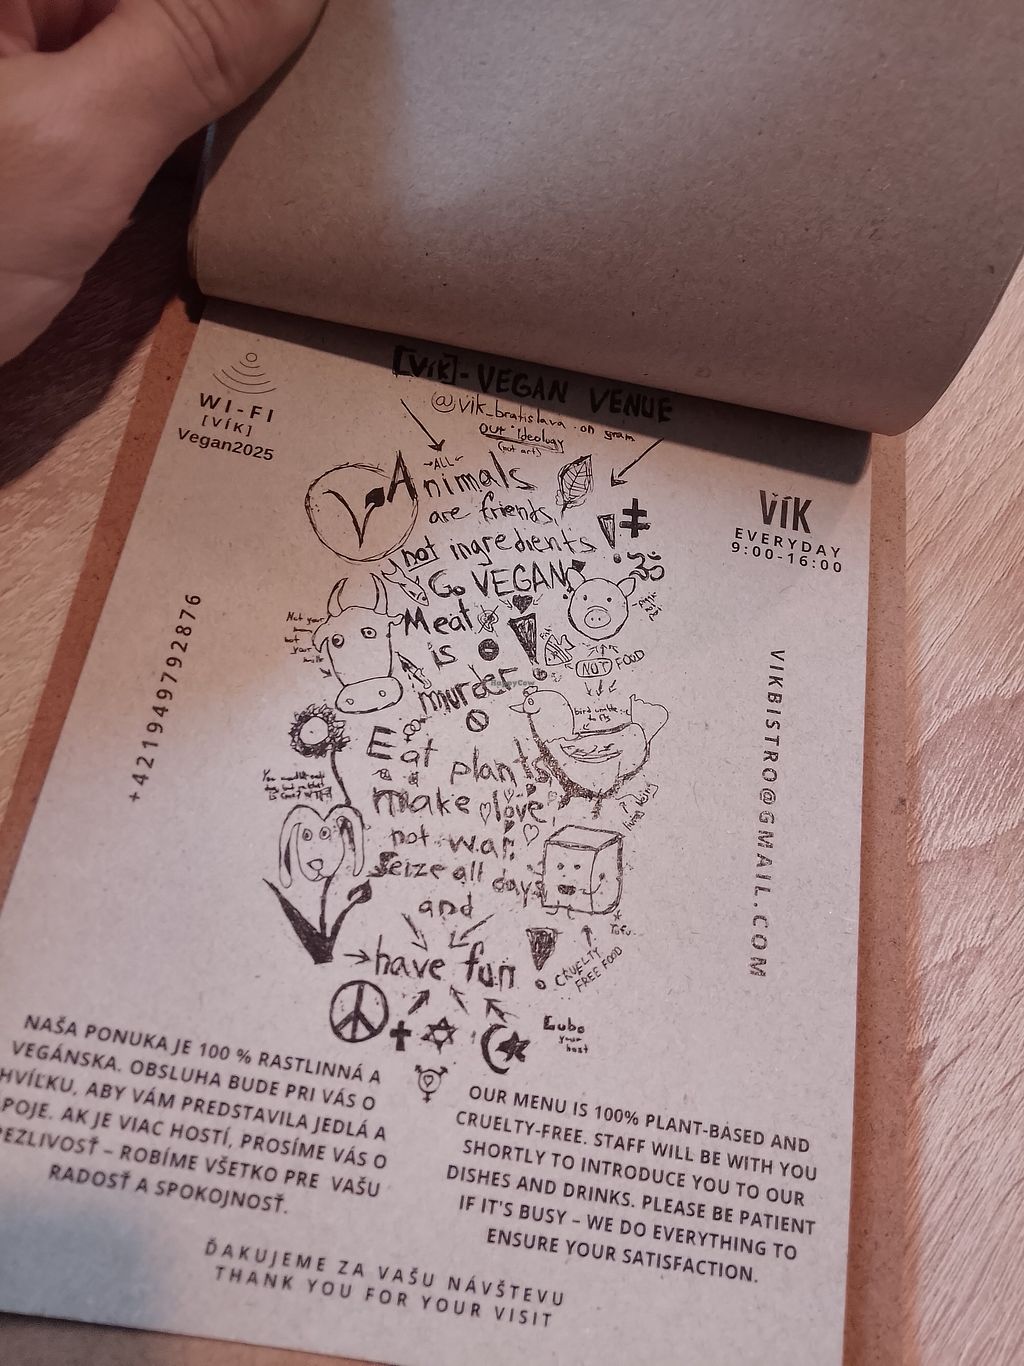 [VíK]-VEGAN VENUE
@vik_bratislava on gram
our ideology
(not art)
WI-FI
[VÍK]
Vegan2025
VÍK
EVERYDAY
9:00-16:00
+421949792876
VIKBISTRO@GMAIL.COM
ALL
Animals
are friends,
not ingredients!
Go VEGAN!
Meat
is
murder
Not your
milk
NOT FOOD
HappyCow
bird unable
to fly
living being
Eat plants,
make love,
not war.
Seize all days
and
have fun!
Tofu
CRUELTY
FREE FOOD
Ľubo
your
host
NAŠA PONUKA JE 100 % RASTLINNÁ A
VEGÁNSKA. OBSLUHA BUDE PRI VÁS O
HVÍĽKU, ABY VÁM PREDSTAVILA JEDLÁ A
POJE. AK JE VIAC HOSTÍ, PROSÍME VÁS O
EZLIVOSŤ – ROBÍME VŠETKO PRE VAŠU
RADOSŤ A SPOKOJNOSŤ.
OUR MENU IS 100% PLANT-BASED AND
CRUELTY-FREE. STAFF WILL BE WITH YOU
SHORTLY TO INTRODUCE YOU TO OUR
DISHES AND DRINKS. PLEASE BE PATIENT
IF IT'S BUSY – WE DO EVERYTHING TO
ENSURE YOUR SATISFACTION.
ĎAKUJEME ZA VAŠU NÁVŠTEVU
THANK YOU FOR YOUR VISIT